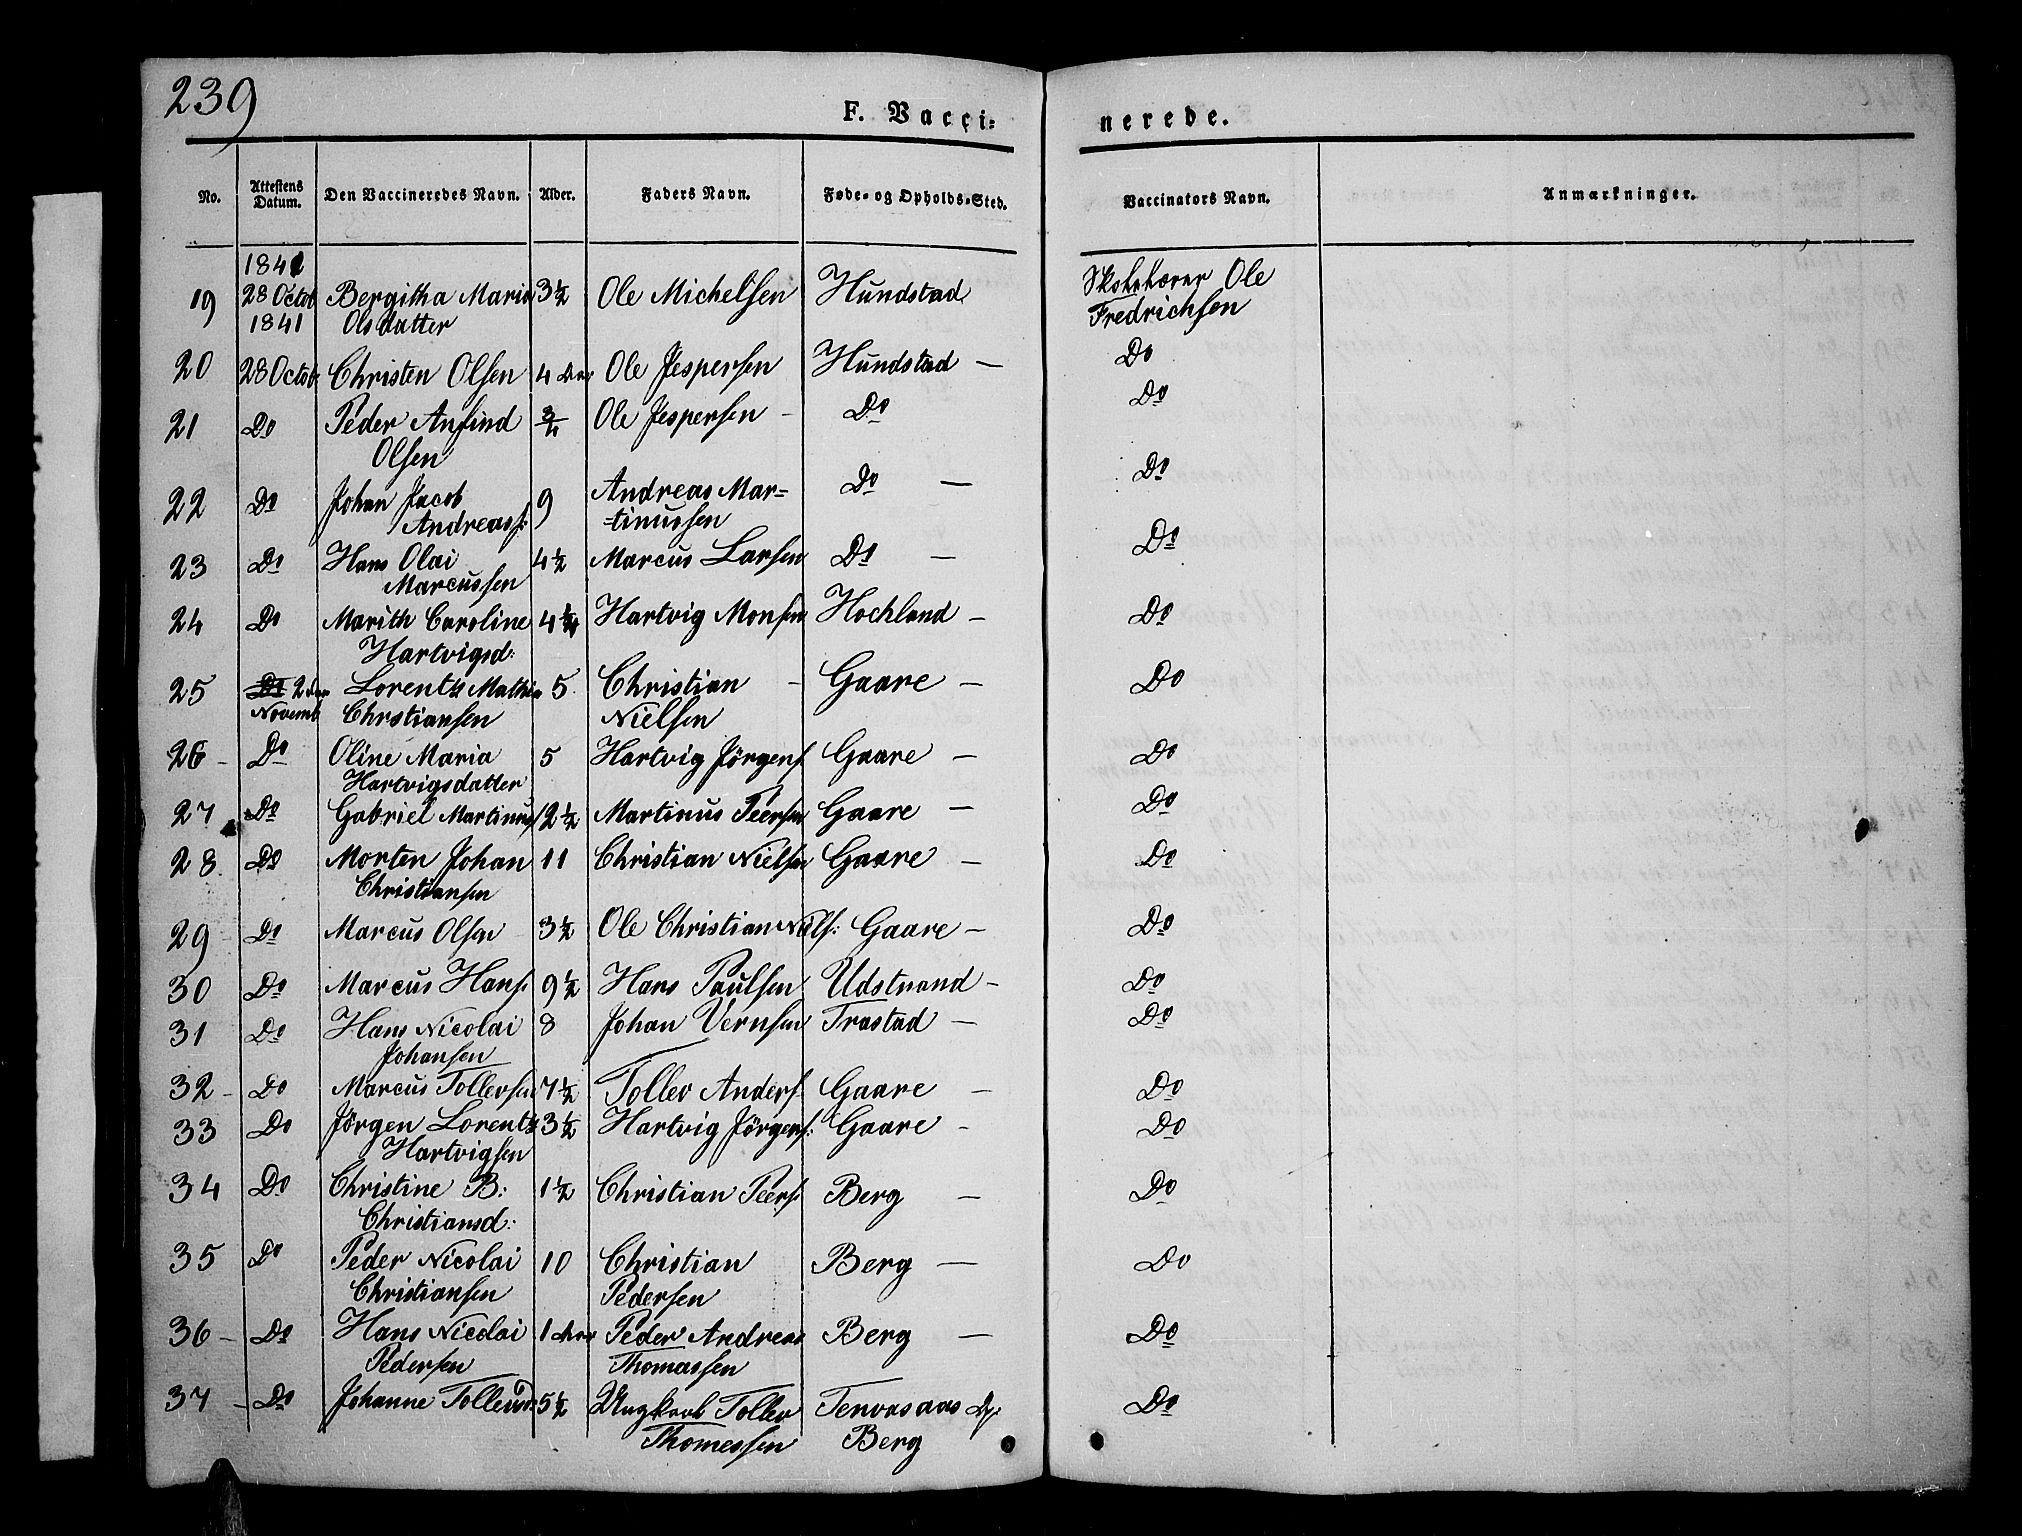 239
F. Vacci=
nerede.
No. Attestens Datum. Den Vaccineredes Navn. Alder. Faders Navn. Føde- og Opholds-Sted. Vaccinators Navn. Anmærkninger.
1841
19 28 Octob Bergitha Maria 3½ Ole Michelsen Hundstad Ole
1841 Olsdatter Fredrichsen
20 28 Octob. Christen Olsen 4 Ole Jespersen Hundstad — Do
21 Do Peder Anfind 3/4 Ole Jespersen - Do Do
Olsen
22 Do Johan Jacob 9 Andreas Mar= Do — Do
Andreass: tinussen
23 Do Hans Olai 4½ Marcus Larsen Do — Do
Marcussen
24 Do Marith Caroline 4¼ Hartvig Monsen Hochland — Do
Hartvigsd:
25 Do 2den Lorents Mathias 5 Christian - Gaare — Do
Novemb Christiansen Nielsen
26 - Do Oline Maria 5 Hartvig Jörgens. Gaare — Do
Hartvigsdatter
27 Do Gabriel Martinus 12½ Martinus Peersen Gaare — Do
28 Do Morten Johan 11 Christian Nielsen Gaare — Do
Christiansen
29 - Do Marcus Olsen 3½ Ole Christian Nils: Gaare — Do
30 Do Marcus Hans. 9½ Hans Paulsen Udstrand - Do
31 Do Hans Nicolai 8 Johan Vernsen Trastad — Do
Johansen
32 - Do Marcus Tollevsen 7½ Tollev Anders. Gaare — Do
33 Do Jörgen Lorents 3½ Hartvig Jörgens: Gaare - Do
Hartvigsen
34 Do Christine B: 1½ Christian Peers. Berg — Do
Christiansd:
35 Do Peder Nicolai 10 Christian Berg — Do
Christiansen Pedersen
36 - Do Hans Nicolai 1 Peder Andreas Berg — Do
Pedersen Thomassen
37 - Do Johanne Tollevsd. 5½ Ungkarl Tollev Do
Thomessen Berg